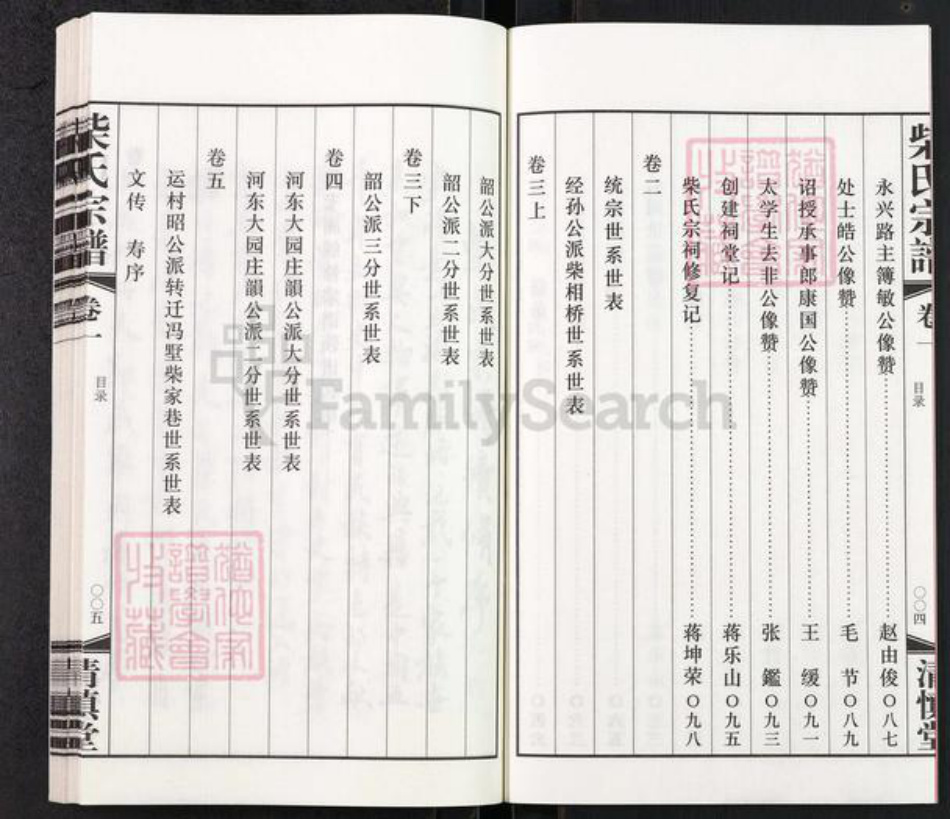 柴氏宗譜
卷一
目录
〇〇四
清慎堂
永兴路主簿敏公像赞 赵由俊 〇八七
处士皓公像赞 毛 节 〇八九
诏授承事郎康国公像赞 王 缓 〇九一
太学生去非公像赞 张 鑑 〇九三
创建祠堂记 蒋乐山 〇九五
柴氏宗祠修复记 蒋坤荣 〇九八
卷二
统宗世系世表
经孙公派柴相桥世系世表
卷三上
韶公派大分世系世表
韶公派二分世系世表
卷三下
韶公派三分世系世表
卷四
河东大园庄韻公派大分世系世表
河东大园庄韻公派二分世系世表
卷五
运村昭公派转迁冯墅柴家巷世系世表
文传 寿序
柴氏宗譜
卷一
目录
〇〇五
清慎堂
猶他家
譜學會
收藏
猶他家
譜學會
收藏
FamilySearch